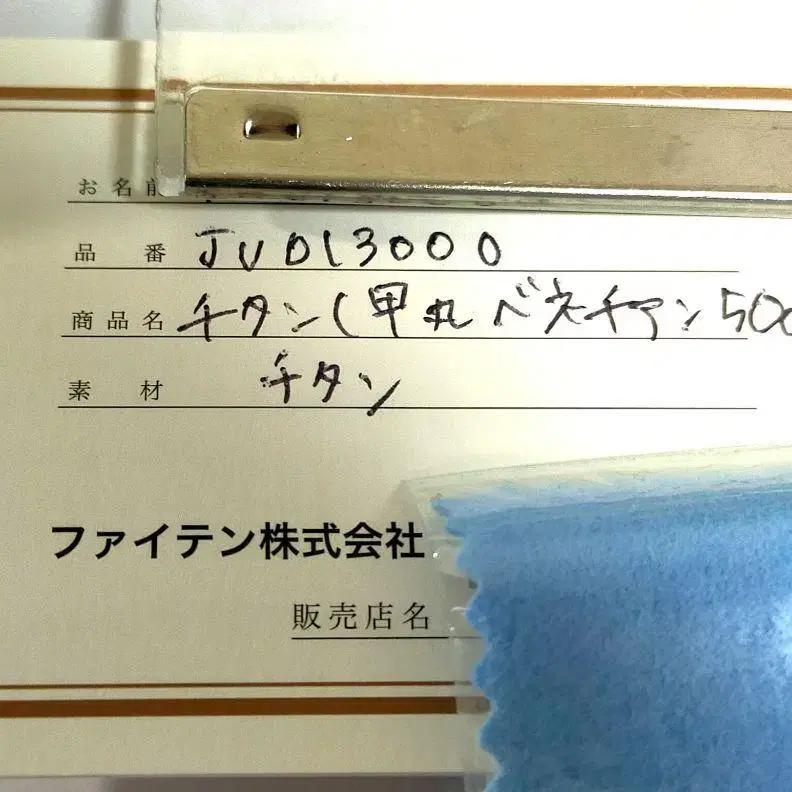 お名前
品番 JU013000
商品名 チタン(甲丸ベネチアン50
素材 チタン
ファイテン株式会社
販売店名